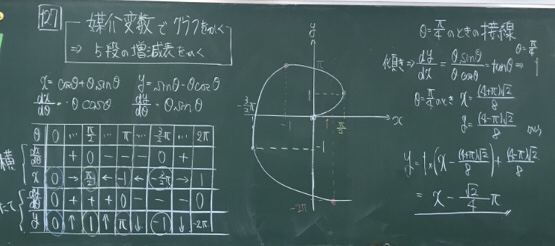 P27
媒介変数でグラフをかく
⇒ 5段の増減表をかく
x = cosθ+θsinθ y = sinθ-θcosθ
dx/dθ = θcosθ dy/dθ = θsinθ
θ 0 … π/2 … π … 3/2π … 2π
横
dx/dθ + 0 - - - 0 +
x 0 → π/2 ← -1 ← -3/2π → 1
たて
dy/dθ 0 + + + 0 - - - 0
y 0 ↑ 1 ↑ π ↓ -1 ↓ -2π
y
π
1
-3/2π
-1
π/2
x
-1
-2π
θ=π/4のときの接線
傾き⇒ dy/dx = θsinθ/θcosθ = tanθ ⇒ 1
θ=π/4
θ=π/4のとき x = (4+π)√2/8
y = (4-π)√2/8
y = 1×(x - (4+π)√2/8) + (4-π)√2/8
= x - √2/4 π